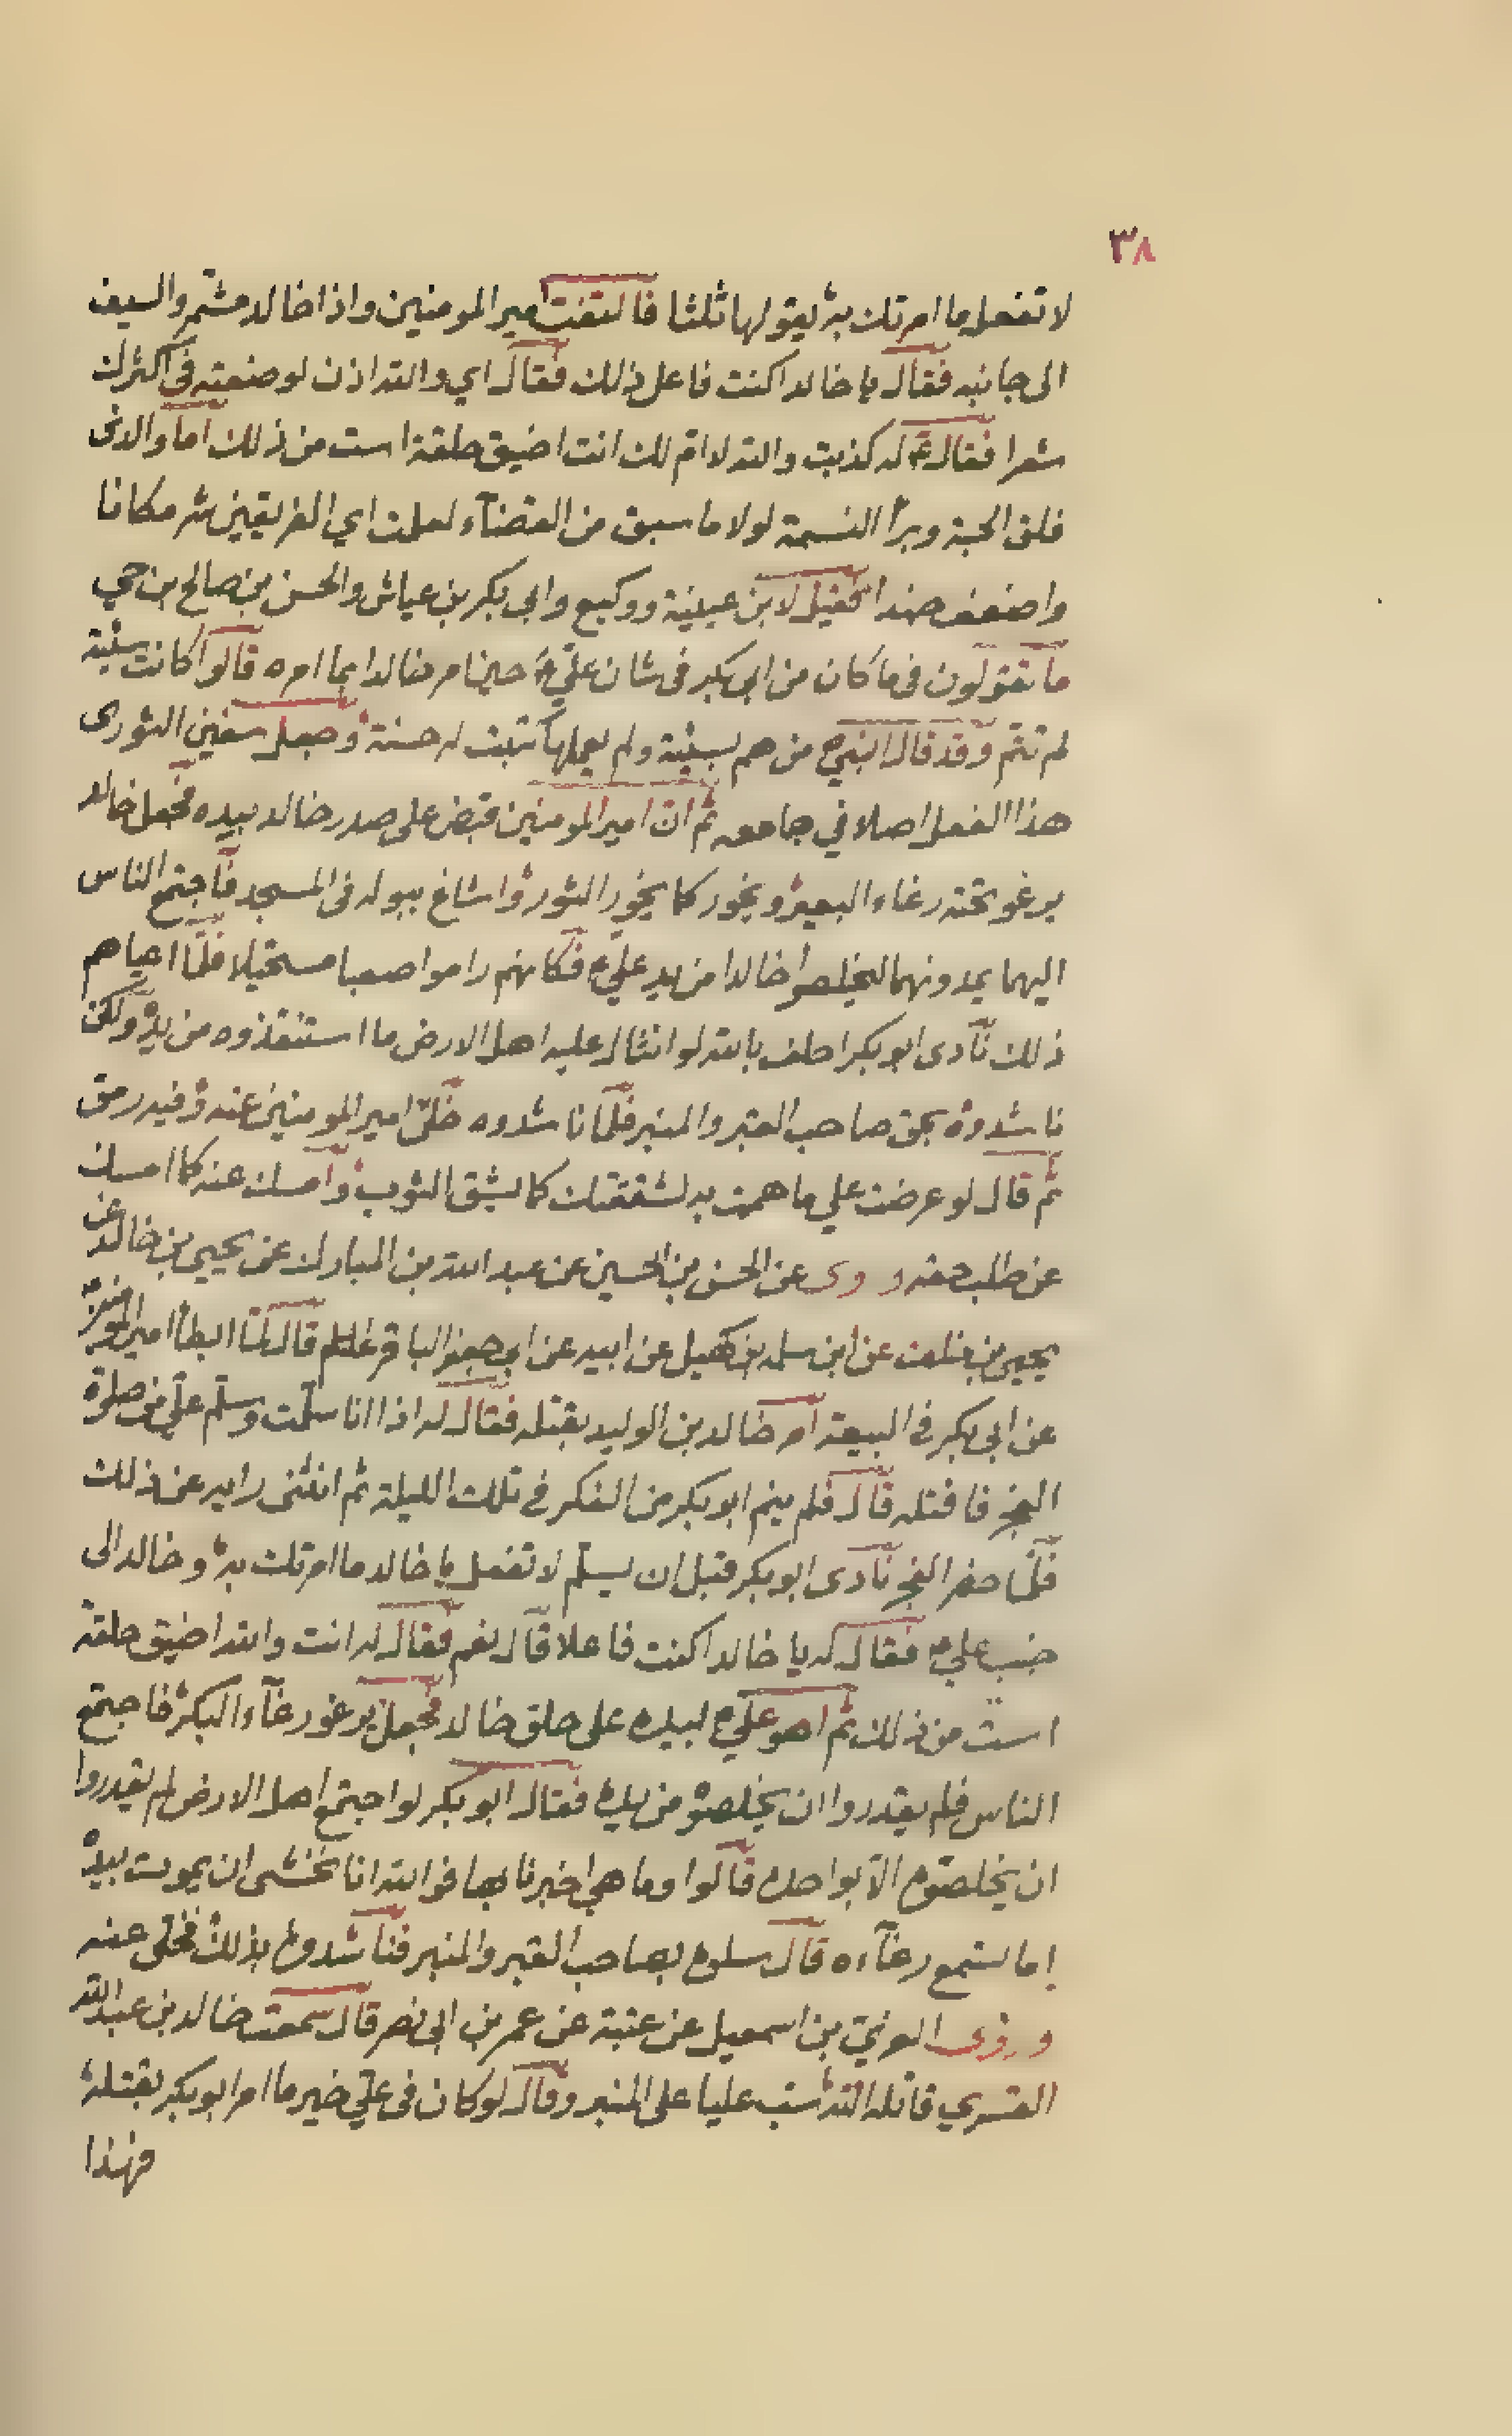 ٣٨
لا تفعل ما امرتك به يقولها ثلثا فالتفت امير المومنين واذا خالد مشتمر والسيف
الى جانبه فقال يا خالد اكنت فاعل ذلك فقال اي والله اذن لوضعته في اكثرك
شعرا فقال ع له كذبت والله لا ام لك انت اضيق حلقة است من ذلك اما والذى
فلق الحبة وبرأ النسمة لولا ما سبق من القضآء لعلمت اي الفريقين شر مكانا
واضعف جندا فقيل لابن عيينة ووكيع وابى بكر بن عياش والحسن بن صالح بن حي
ما تقولون فى ما كان من ابى بكر فى شان علي ع حين امر خالدا بما امره قالوا كانت سيئة
لم تتم وقد قال النبي من هم بسيئة ولم يعملها كتبت له حسنة وجعل سفين الثورى
هذا الفعل اصلا في جامعه ثم ان امير المومنين قبض على صدر خالد بيده فجعل خالد
يرغو تحته رغاء البعير ويخور كما يخور الثور واشاغ ببوله فى المسجد فاجتمع الناس
اليهما يمدونهما ليخلصوا خالدا من يد علي ع فكانهم راموا صعبا مستحيلا فلما اعياهم
ذلك نادى ابو بكر احلف بالله لو انثال عليه اهل الارض ما استنقذوه من يده ولكن
ناشدوه بحق صاحب القبر والمنبر فلما ناشدوه خلى امير المومنين عنه وفيه رمق
ثم قال لو عرضت علي ما هممت به لشققتك كما يشق الثوب وامسك عنه كما امسك
عن طلب حقه وروى عن الحسن بن الحسين عن عبد الله بن المبارك عن يحيى بن خالد عن
يحيى بن عن ابن سلمه بن كهيل عن ابيه عن ابى جعفر الباقر عليه السلم قال لما ابطأ امير المومنين
عن ابى بكر فى البيعة امر خالد بن الوليد بقتله فقال له اذا انا سلمت وسلم علي من صلوة
الفجر فاقتله قال فلم ينم ابو بكر من الفكر فى تلك الليلة ثم انثنى رايه عن ذلك
فلما حضر الفجر نادى ابو بكر قبل ان يسلم لا تفعل يا خالد ما امرتك به وخالد الى
جنب علي ع فقال له يا خالد اكنت فاعلا قال نعم فقال له انت والله اضيق حلقة
است من ذلك ثم اهو علي ع ببيده على حلق خالد فجعل يرغو رغآء البكر فاجتمع
الناس فلم يقدروا ان يخلصوه من يده فقال ابو بكر لو اجتمع اهل الارض لم يقدروا
ان يخلصوه الا بواحده قالوا وما هي اخبرنا بها فوالله انا نخشى ان يموت بيده
اما تسمع رغآءه قال سلوه بصاحب القبر والمنبر فناشدوه بذلك فخلى عنه
وروى بن اسمعيل عن عتبة عن عمر بن ابى نصر قال سمعت خالد بن عبد الله
القسري قاتله الله سب عليا على المنبر وقال لو كان فى علي خير ما امر ابو بكر بقتله
فهذا